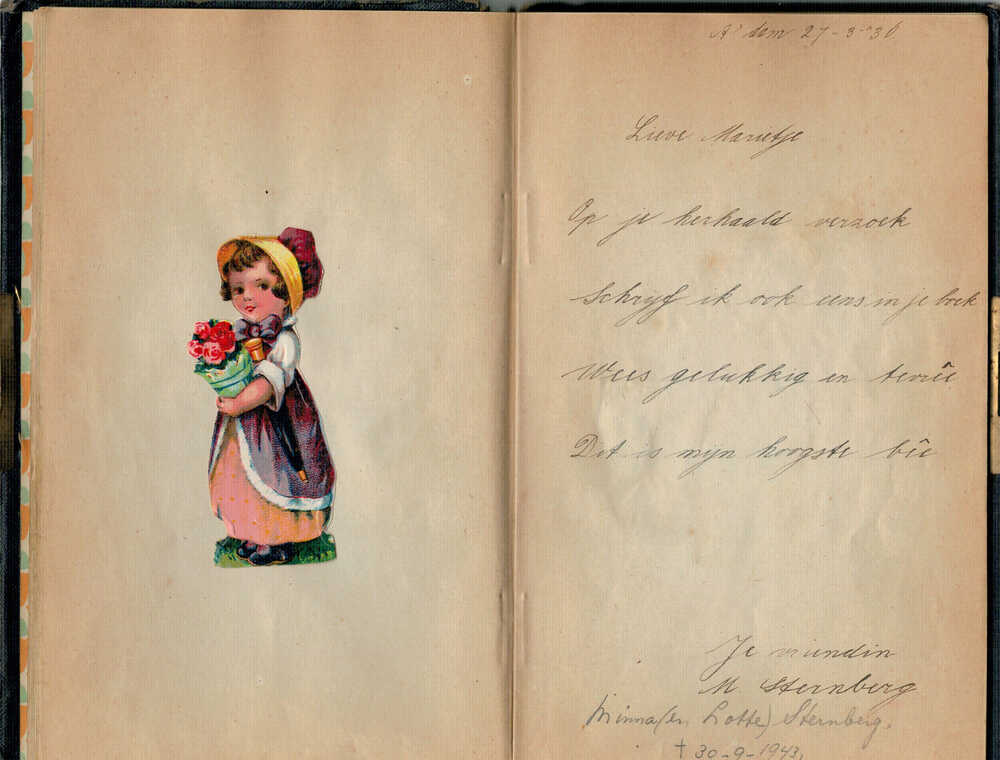 A'dam 27-3-'36
Lieve Marietje
Op je herhaald verzoek
Schrijf ik ook eens in je boek
Wees gelukkig en tevrêe
Dit is mijn hoogste bêe
Je vriendin
M Sternberg
Minna (en Lotte) Sternberg.
† 30-9-1943.